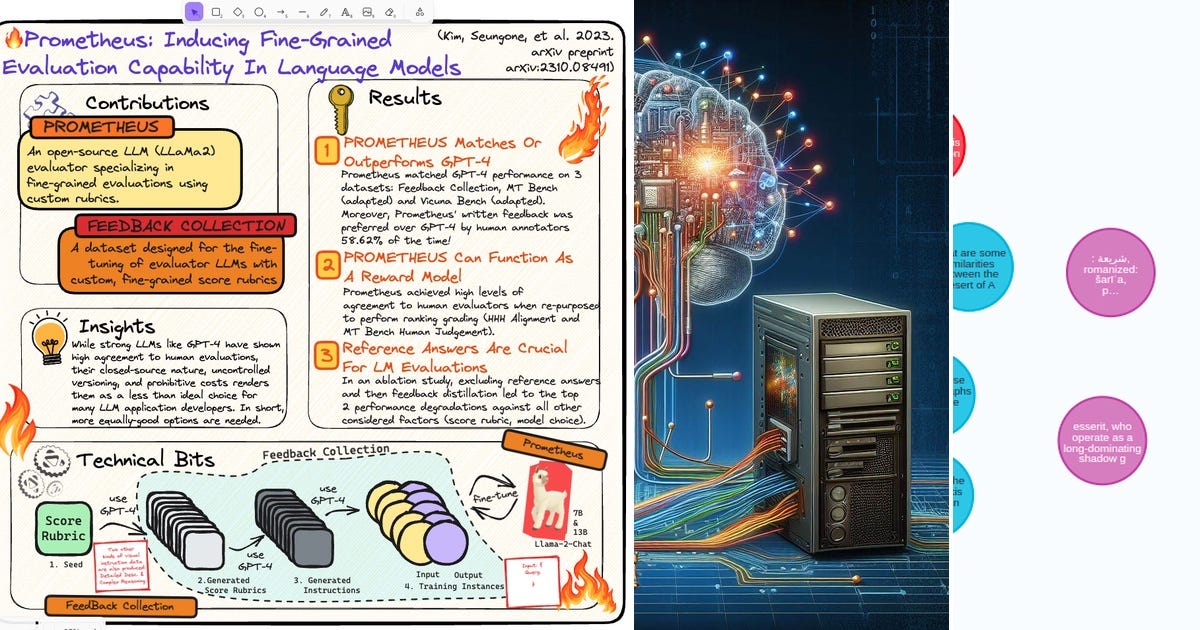 Prometheus: Inducing Fine-Grained
Evaluation Capability In Language Models
(Kim, Seungone, et al. 2023.
arXiv preprint
arXiv:2310.08491)
Contributions
PROMETHEUS
An open-source LLM (LLaMa2)
evaluator specializing in
fine-grained evaluations using
custom rubrics.
FEEDBACK COLLECTION
A dataset designed for the fine-
tuning of evaluator LLMs with
custom, fine-grained score rubrics
Insights
While strong LLMs like GPT-4 have shown
high agreement to human evaluations,
their closed-source nature, uncontrolled
versioning, and prohibitive costs renders
them as a less than ideal choice for
many LLM application developers. In short,
more equally-good options are needed.
Results
1
PROMETHEUS Matches Or
Outperforms GPT-4
Prometheus matched GPT-4 performance on 3
datasets: Feedback Collection, MT Bench
(adapted) and Vicuna Bench (adapted).
Moreover, Prometheus' written feedback was
preferred over GPT-4 by human annotators
58.62% of the time!
2
PROMETHEUS Can Function As
A Reward Model
Prometheus achieved high levels of
agreement to human evaluators when re-purposed
to perform ranking grading (HHH Alignment and
MT Bench Human Judgement).
3
Reference Answers Are Crucial
For LM Evaluations
In an ablation study, excluding reference answers
and then feedback distillation led to the top
2 performance degradations against all other
considered factors (score rubric, model choice).
Technical Bits
Feedback Collection
Prometheus
Score
Rubric
1. Seed
use
GPT-4
Two other
kinds of visual
instruction data
are also produced
Detailed Desc. &
Complex Reasoning
2.Generated
Score Rubrics
use
GPT-4
3. Generated
Instructions
use
GPT-4
Input Output
4. Training Instances
fine-tune
7B
&
13B
Llama-2-Chat
Input: f
Query
FeedBack Collection
at are some
milarities
tween the
esert of A
: شريعة,
romanized:
šarīʿa,
p...
esserit, who
operate as a
long-dominating
shadow g